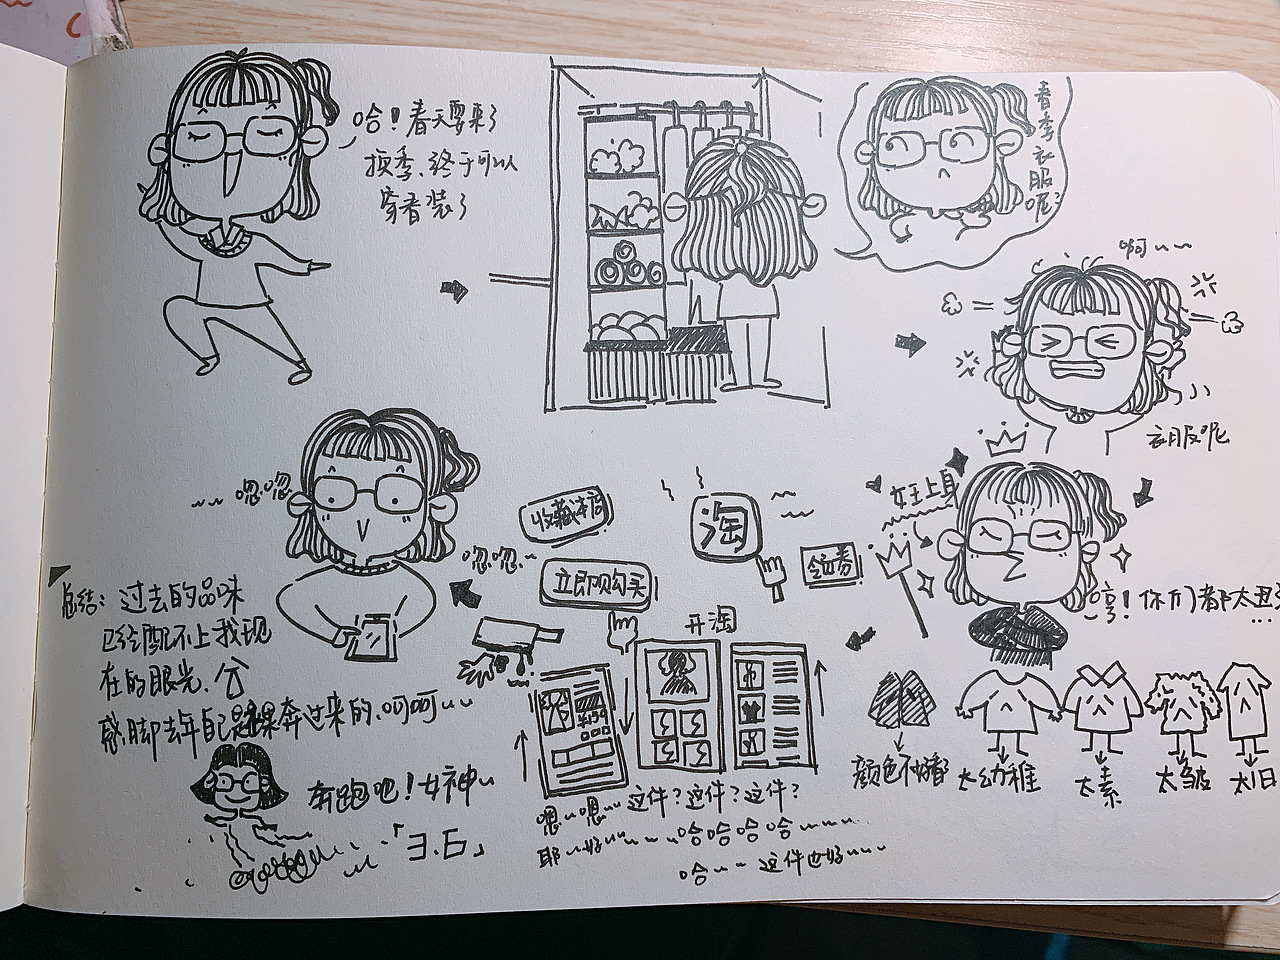 哈！春天要来了
换季、终于可以
穿春装了
春季衣服呢？
啊~~
衣服呢
女王上身
哼！你们都太丑了
...
颜色不好看
太幼稚
太素
太皱
太旧
淘
领券
收藏本店
立即购买
开淘
¥159
嗯~嗯~~这件？这件？这件？
耶~好~~~~哈哈哈哈~~~
哈~~这件也好~~~
~~嗯嗯
嗯嗯~
总结：过去的品味
已经配不上我现
在的眼光、
感、脚去年自己是裸奔过来的、呵呵~~
奔跑吧！女神~
「3.6」